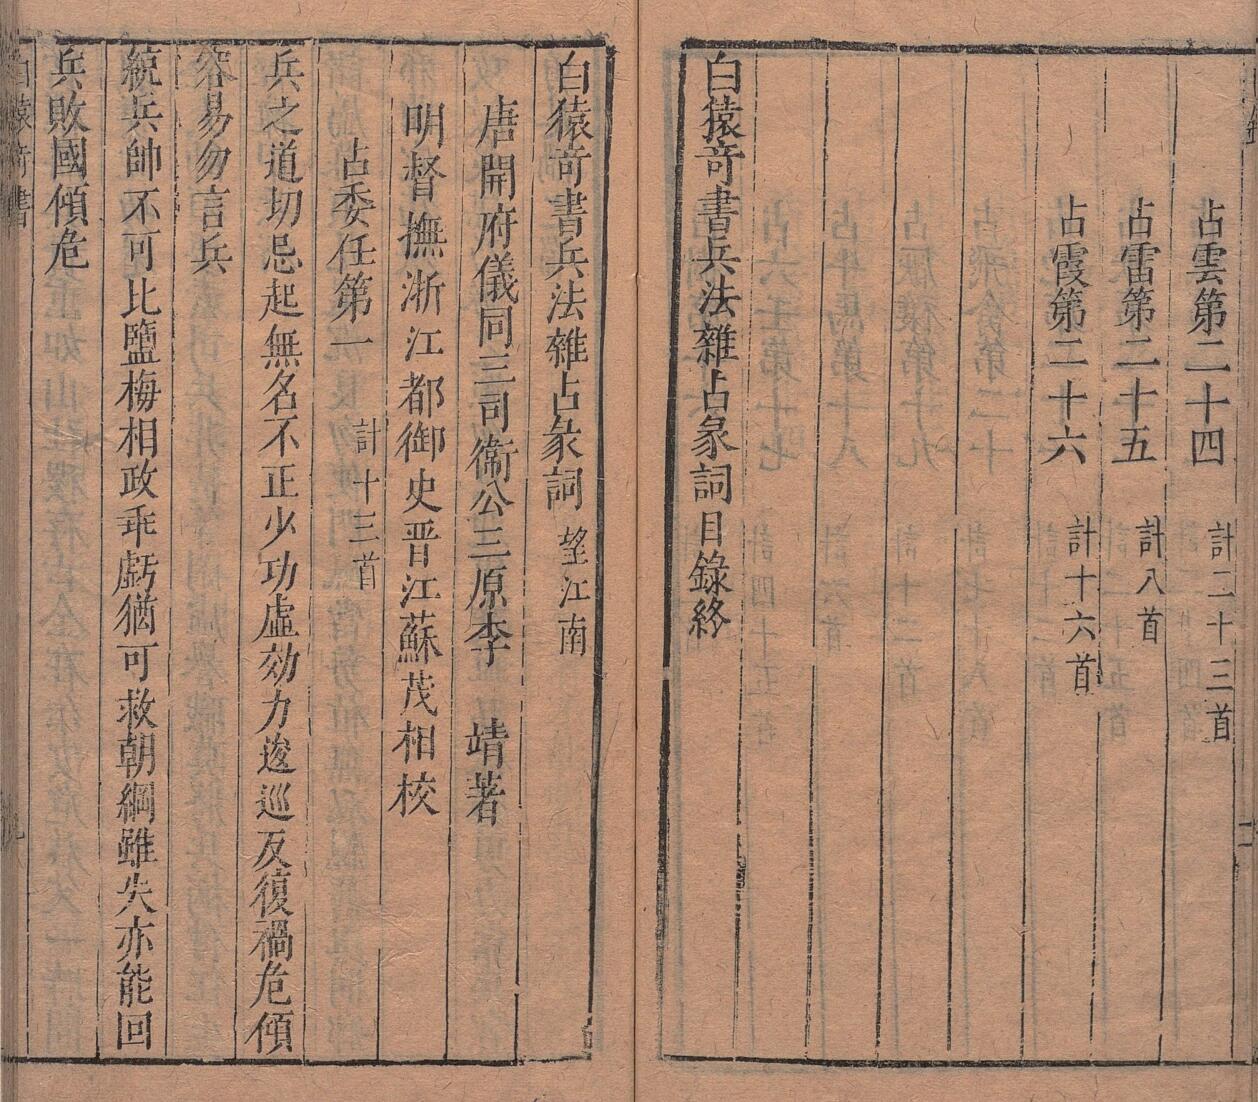 占雲第二十四 計二十三首
占雷第二十五 計八首
占霞第二十六 計十六首
白猿竒書兵法雜占彖詞目錄終
白猿竒書兵法雜占彖詞 望江南
唐開府儀同三司衞公三原李 靖著
明督撫浙江都御史晉江蘇茂相校
占委任第一 計十三首
兵之道切忌起無名不正少功虛効力逡巡反復禍危傾
容易勿言兵
統兵帥不可比鹽梅相政乖虧猶可救朝綱雖失亦能回
兵敗國傾危
白猿竒書